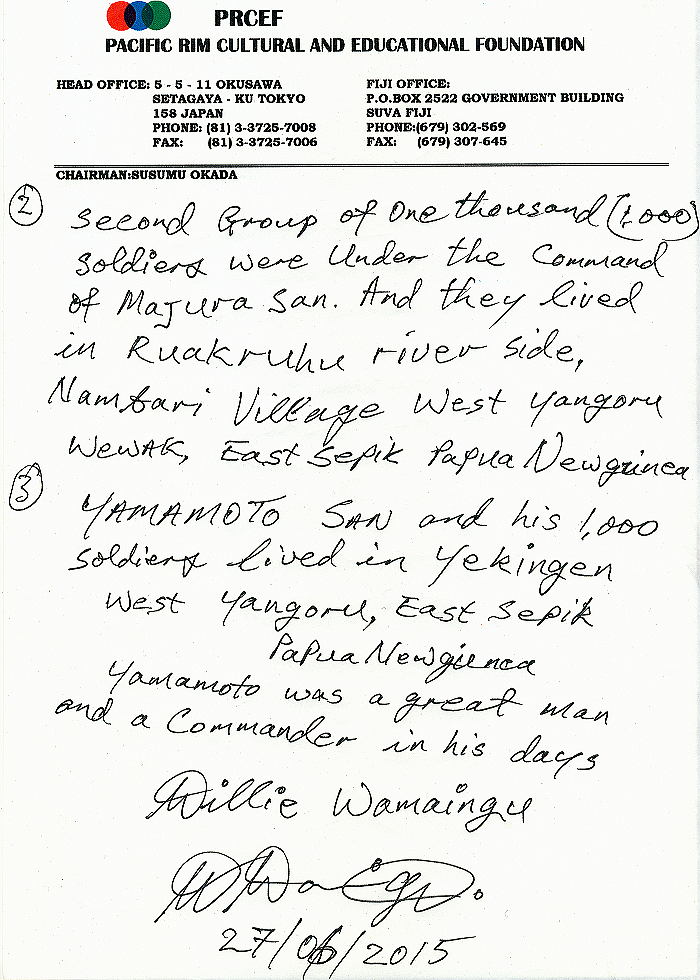 PRCEF
PACIFIC RIM CULTURAL AND EDUCATIONAL FOUNDATION
HEAD OFFICE: 5 - 5 - 11 OKUSAWA
SETAGAYA - KU TOKYO
158 JAPAN
PHONE: (81) 3-3725-7008
FAX: (81) 3-3725-7006
FIJI OFFICE:
P.O.BOX 2522 GOVERNMENT BUILDING
SUVA FIJI
PHONE:(679) 302-569
FAX: (679) 307-645
CHAIRMAN:SUSUMU OKADA
2 Second Group of One thousand (1,000)
soldiers were Under the Command
of Majura San. And they lived
in Ruakruhu river side,
Nambari Village West Yangoru
WEWAK, East Sepik Papua Newguinea
3 YAMAMOTO SAN and his 1,000
soldiers lived in Yekingen
West Yangoru, East Sepik
Papua Newguinea
Yamamoto was a great man
and a Commander in his days
Willie Wamaingu
27/06/2015